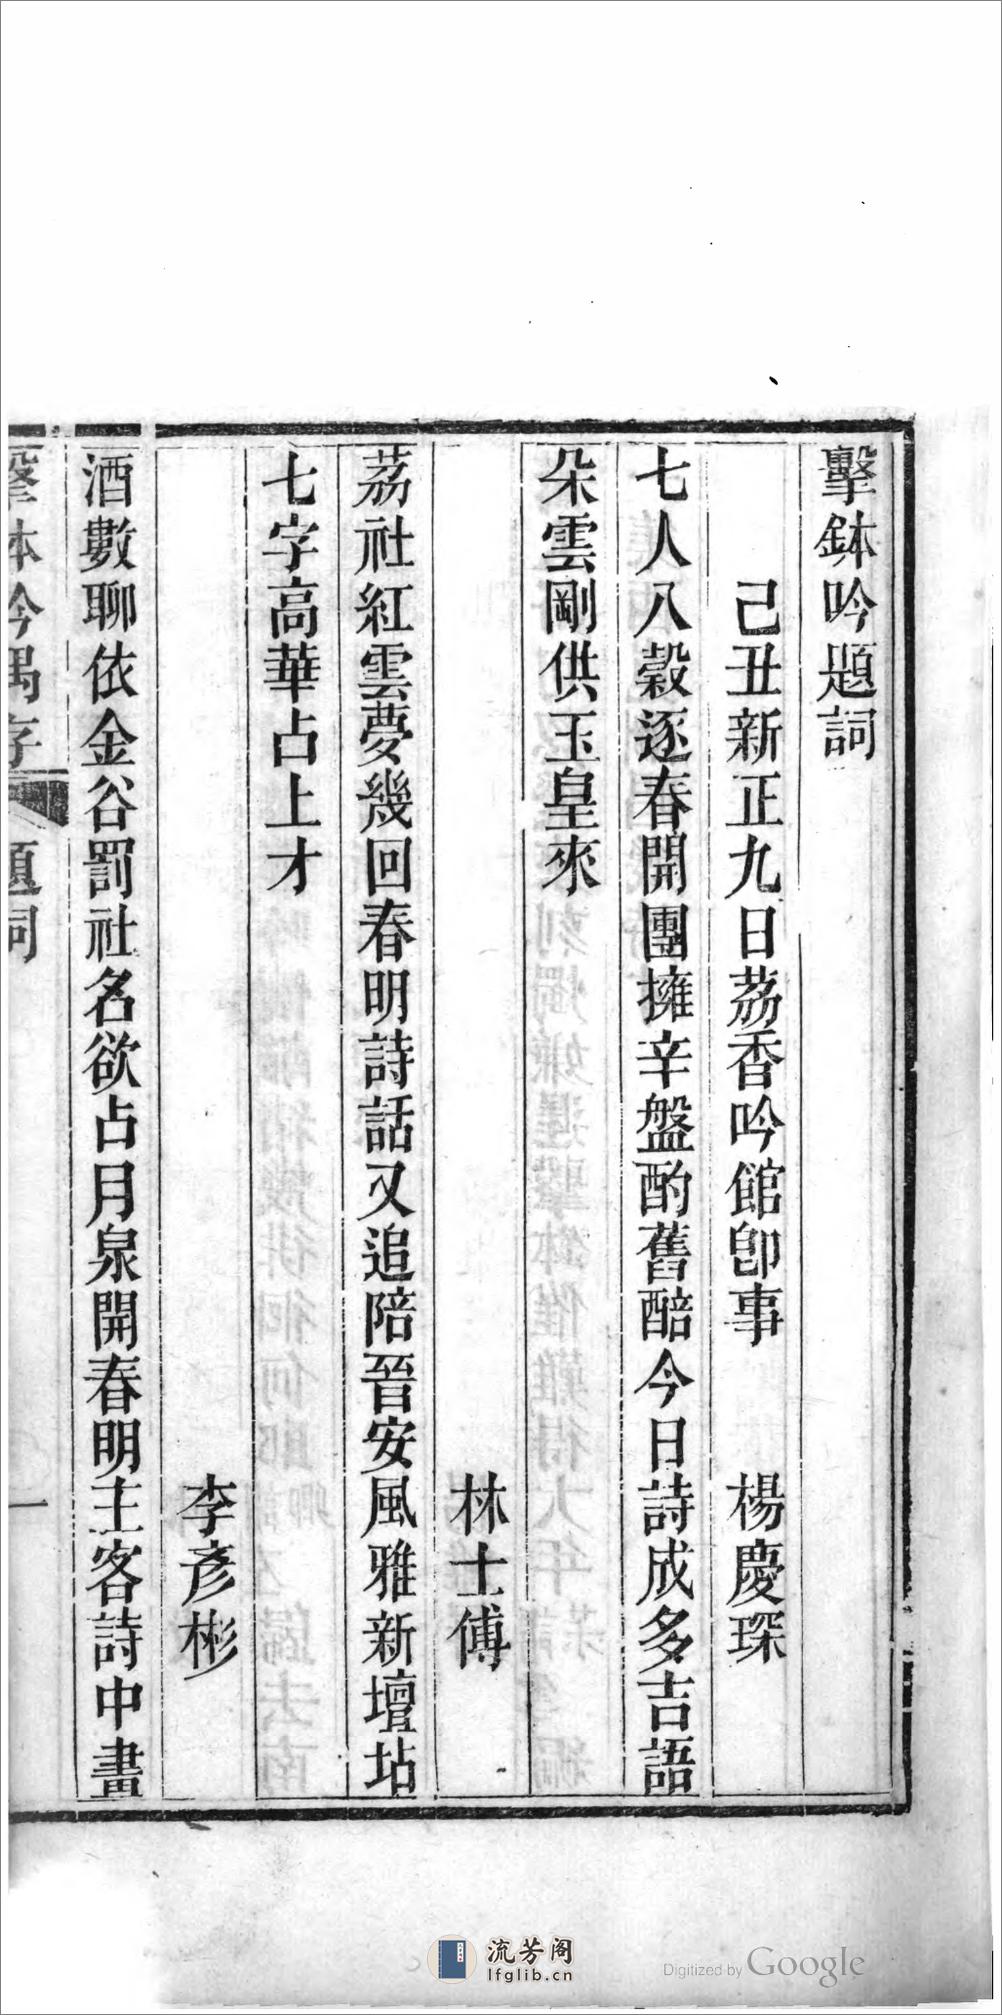 擊鉢吟題詞
己丑新正九日荔香吟館卽事　楊慶琛
七人八穀逐春開團擁辛盤酌舊醅今日詩成多吉語
朵雲剛供玉皇來
林士傅
荔社紅雲夢幾回春明詩話又追陪晉安風雅新壇坫
七字高華占上才
李彥彬
酒數聊依金谷罰社名欲占月泉開春明主客詩中畫
擊鉢吟偶存　題詞　一
流芳阁
lfglib.cn
Digitized by Google